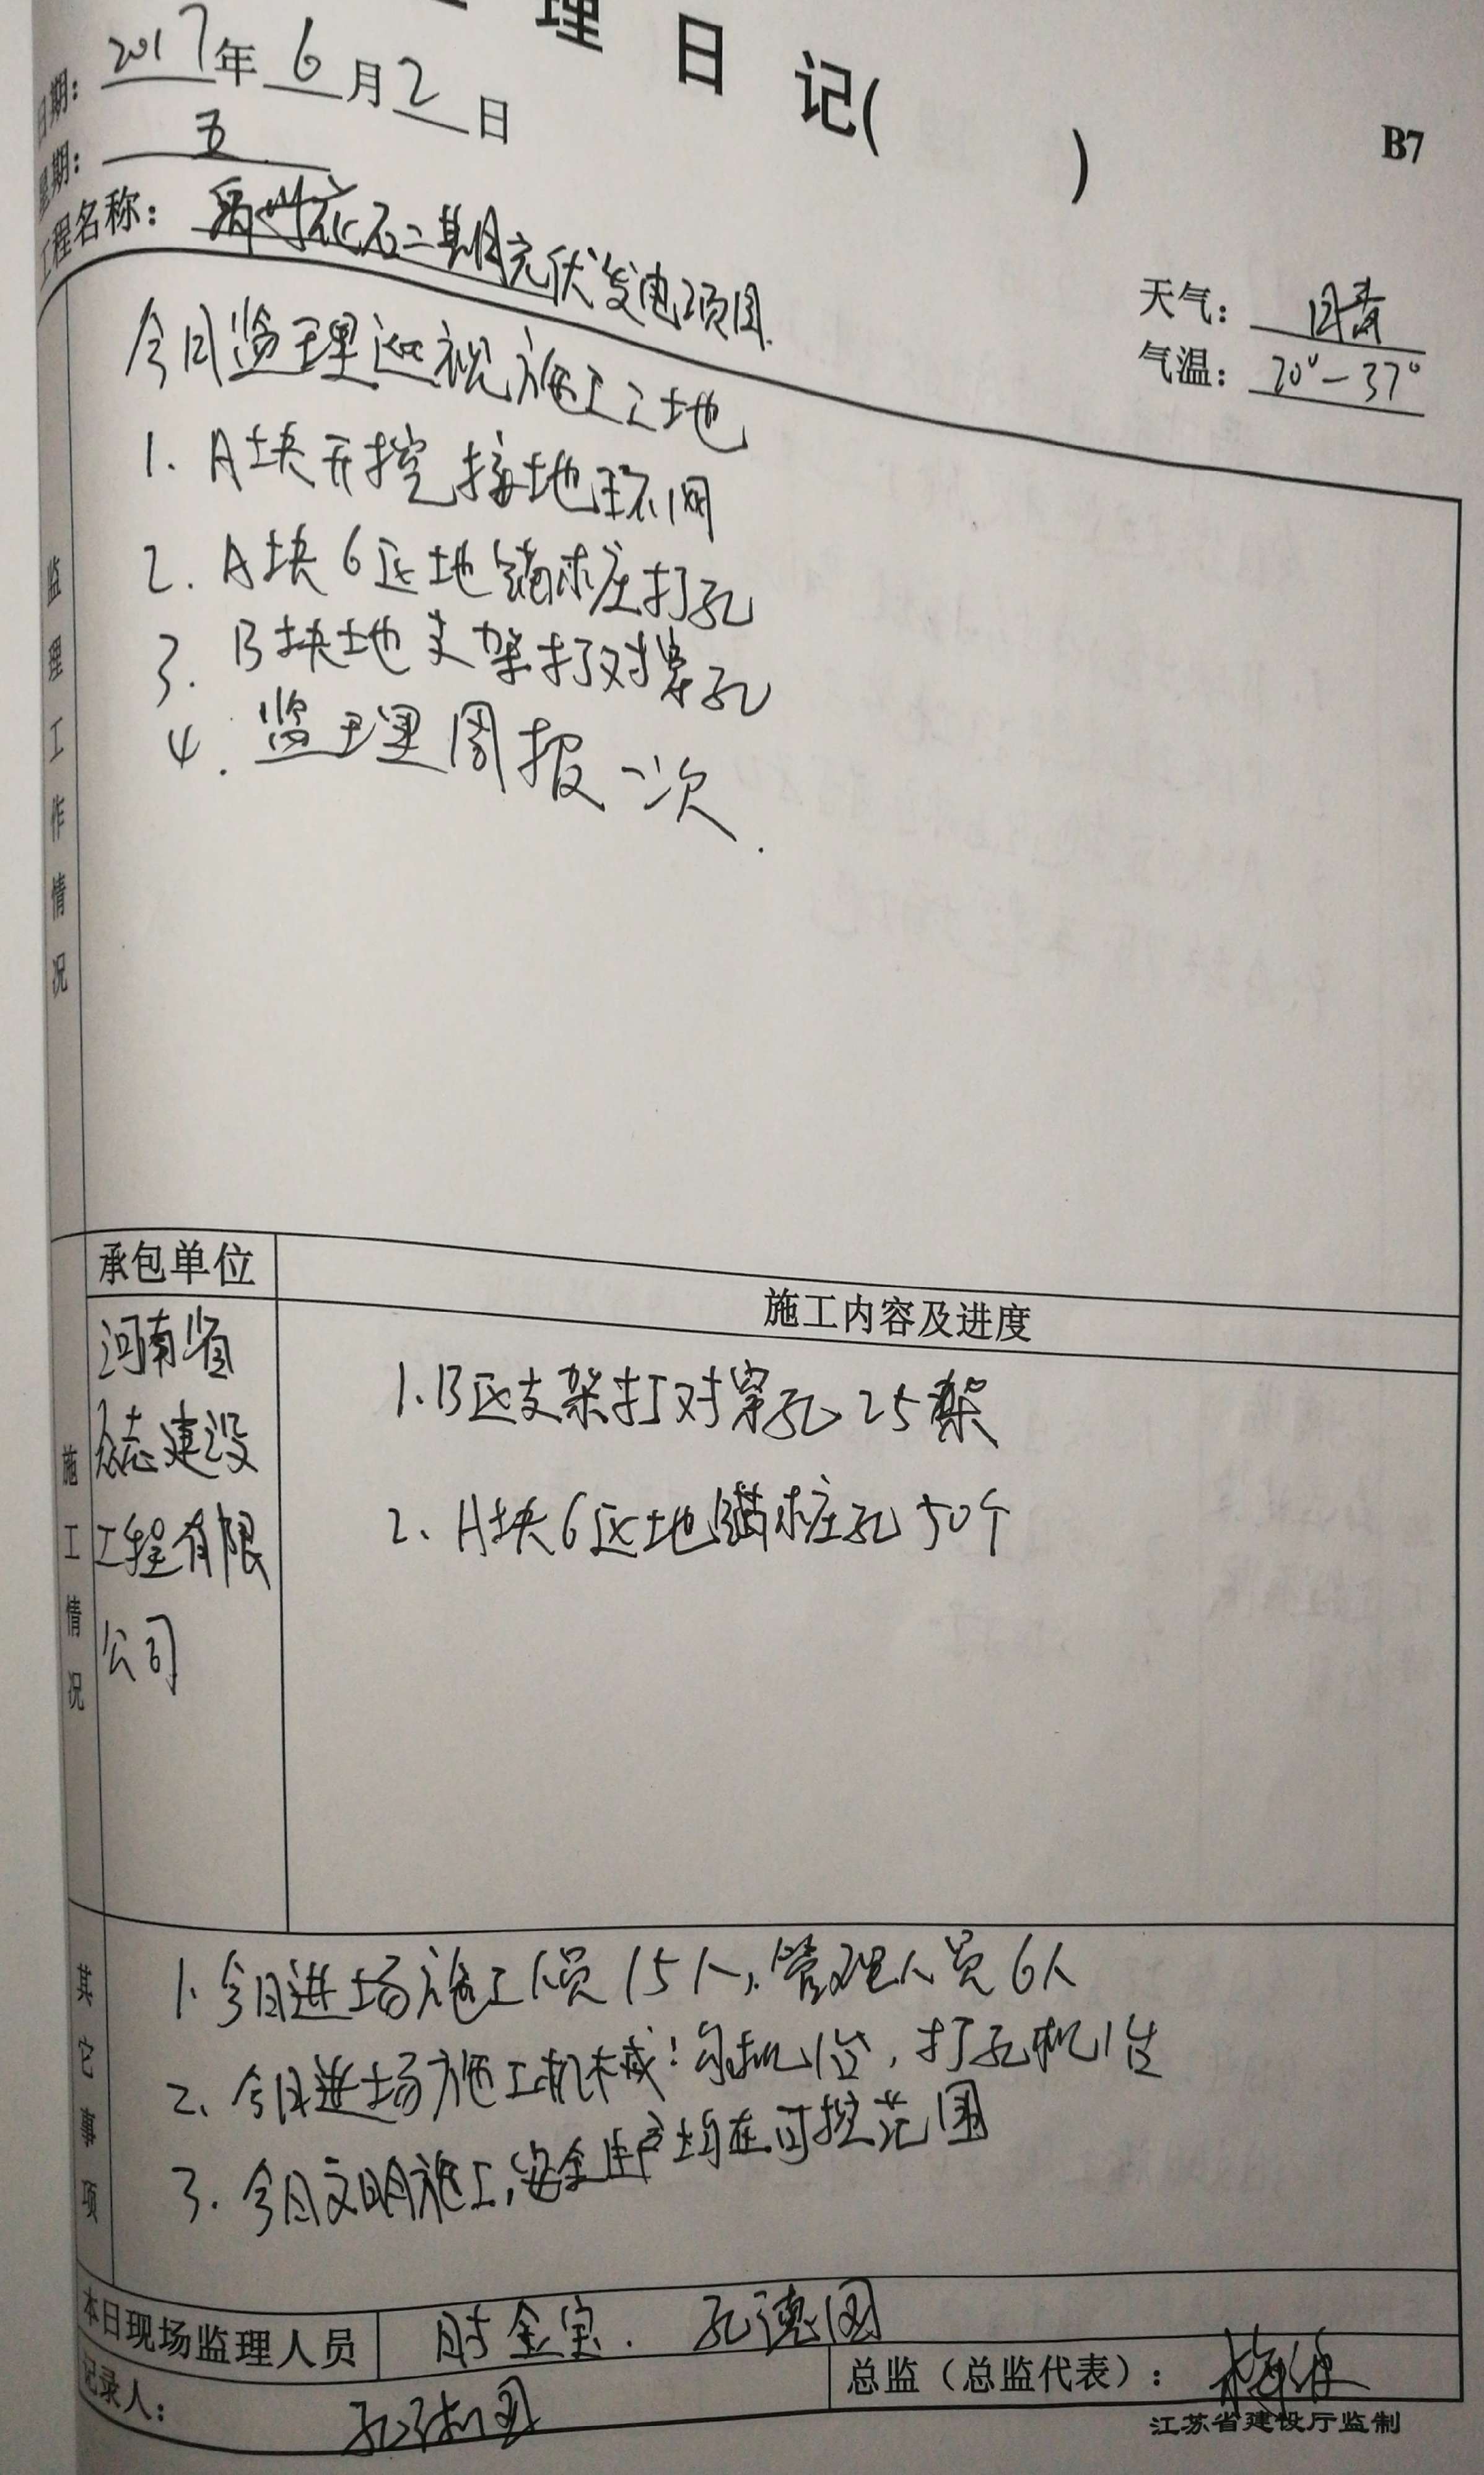 理 日 记( )
B7
日期：2017年6月2日
星期：五
工程名称：禹州花石二期光伏发电项目
天气：晴
气温：20°-37°
监理工作情况
今日监理巡视施工工地
1. A块开挖接地环网
2. A块6区地锚桩打孔
3. B块地支架打对穿孔
4. 监理周报一次.
施工情况
承包单位
施工内容及进度
河南省
众志建设
工程有限
公司
1. B区支架打对穿孔25架
2、A块6区地锚桩孔50个
其它事项
1. 今日进场施工人员15人，管理人员6人
2、今日进场施工机械：勾机1台，打孔机1台
3. 今日文明施工，安全生产均在可控范围
本日现场监理人员 时金宝. 孔德国
记录人：
总监（总监代表）：
江苏省建设厅监制